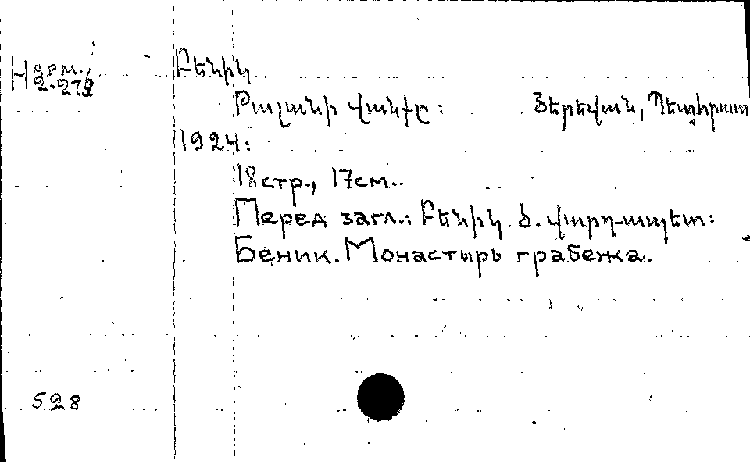 Нарм.
2.272
Բենիկ
Թալանի վանքը: Յերեվան, Պետհրատ
1924:
18стр., 17см.
Перед загл.: Բենիկ ծ. վարդապետ:
Беник. Монастырь грабежа.
528